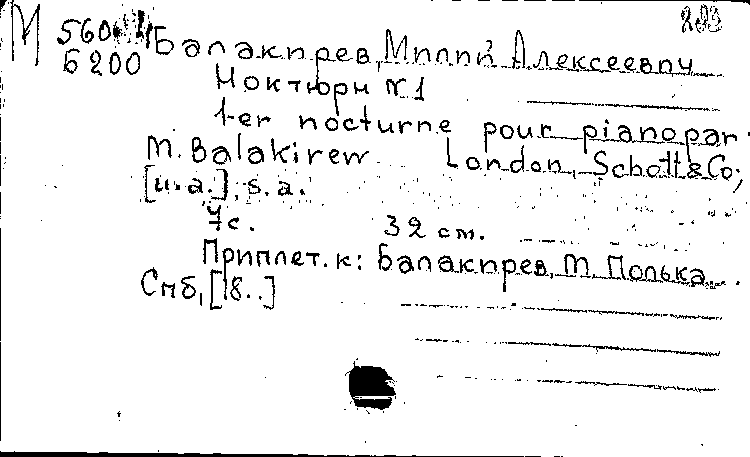 М 560
Б 200
Балакирев, Милий Алексеевич
Ноктюрн №1
1-er nocturne pour piano par
M. Balakirew London, Schott & Co;
[u.a.], s.a.
7с. 32 см.
Приплет. к: Балакирев, М. Полька.
Спб, [18..]